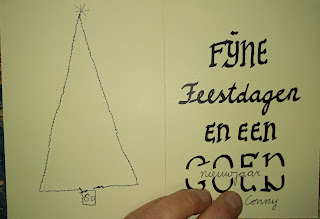 FŸNE
Feestdagen
EN EEN
GOED
nieuwjaar
Conny